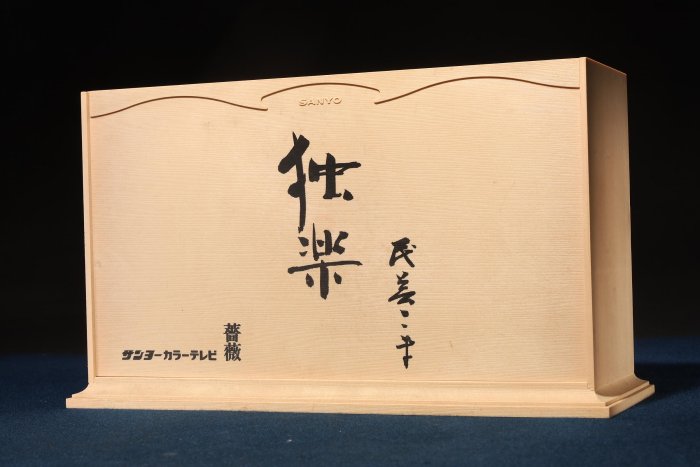 SANYO
独楽
サンヨーカラーテレビ
薔薇